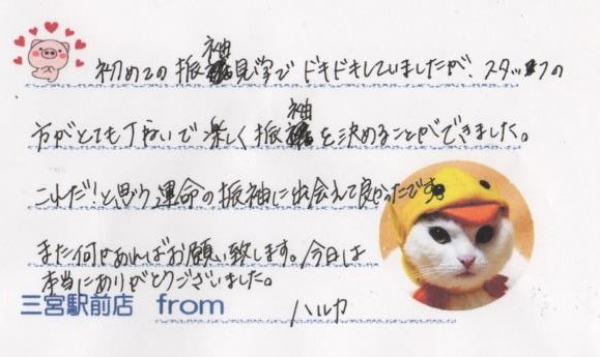 初めての振袖見学でドキドキしていましたが、スタッフの
方がとても丁ねいで楽しく振袖を決めることができました。
これだ!と思う運命の振袖に出会えて良かったです。
また何かあればお願い致します。今日は
本当にありがとうございました。
三宮駅前店 from ハルカ